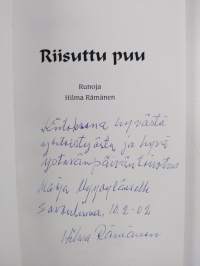 Riisuttu puu
Runoja
Hilma Rämänen
Kiitoksena hyvästä
yhteistyöstä ja hyvä
ystävänpäiväntoivotus
Maija
Savonlinna, 10.2-02
Hilma Rämänen